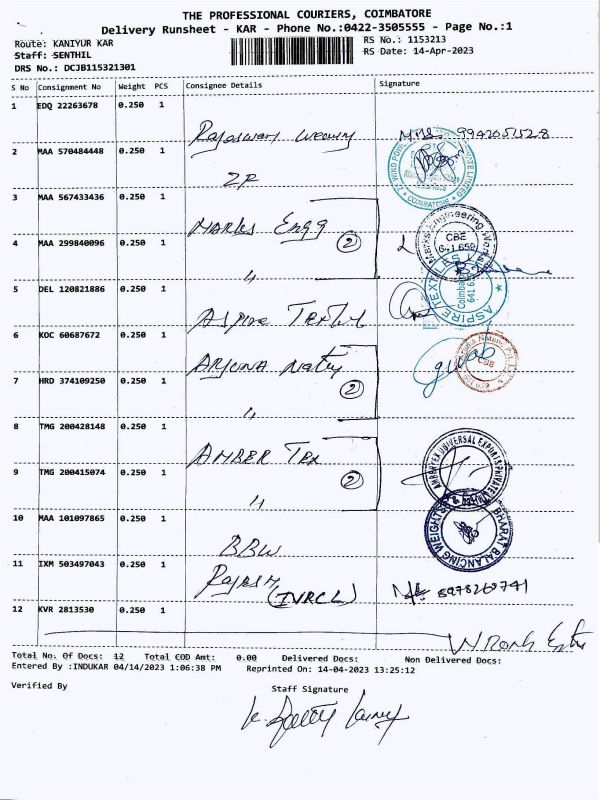 THE PROFESSIONAL COURIERS, COIMBATORE
Delivery Runsheet - KAR - Phone No.:0422-3505555 - Page No.:1
Route: KANIYUR KAR RS No.: 1153213
Staff: SENTHIL RS Date: 14-Apr-2023
DRS No.: DCJB115321301
S No Consignment No Weight PCS Consignee Details Signature
1 EDQ 22263678 0.250 1
2 MAA 570484448 0.250 1
ZF
3 MAA 567433436 0.250 1
Marks Engg 2
4 MAA 299840096 0.250 1
"
Marks Engineering Works
CBE
641 659
5 DEL 120821886 0.250 1
Aspire Textil
ASPIRE TEXTILES
Coimbatore
6 KOC 60687672 0.250 1
2
7 HRD 374109250 0.250 1
"
CBE
8 TMG 200428148 0.250 1
AMBER Tex 2
9 TMG 200415074 0.250 1
"
UNIVERSAL EXPORTS PRIVATE
10 MAA 101097865 0.250 1
BBW
BHARAT BALANCING WEIGHTS
11 IXM 503497043 0.250 1
Rajesh
(IVRCL) 8978260741
12 KVR 2813530 0.250 1
Total No. Of Docs: 12 Total COD Amt: 0.00 Delivered Docs: Non Delivered Docs:
Entered By :INDUKAR 04/14/2023 1:06:38 PM Reprinted On: 14-04-2023 13:25:12
Verified By Staff Signature